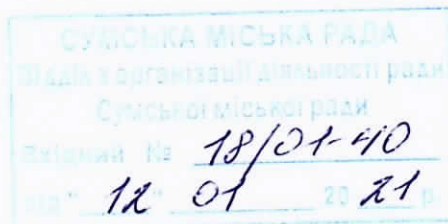 СУМСЬКА МІСЬКА РАДА
Відділ з організації діяльності ради
Сумської міської ради
Вхідний № 18/01-40
від " 12 " 01 20 21 р.